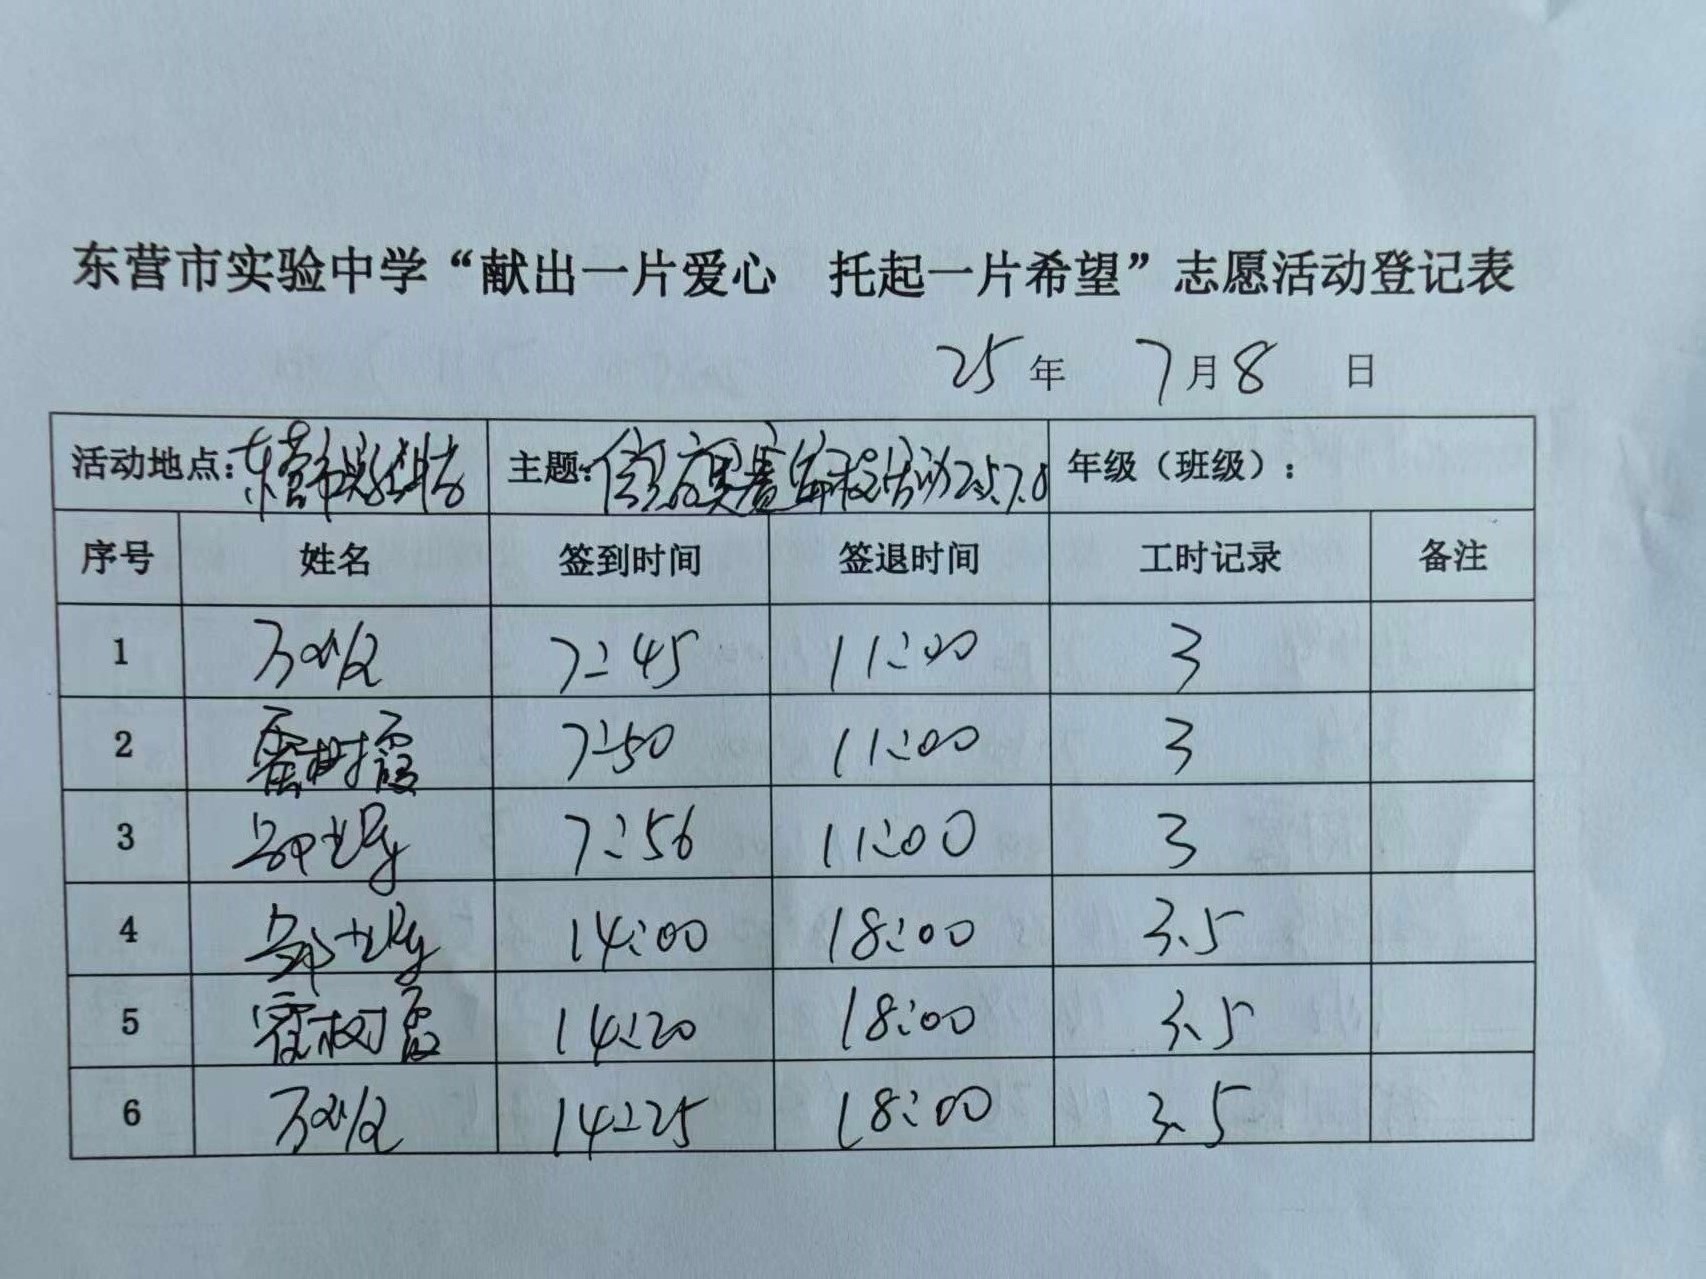 东营市实验中学“献出一片爱心 托起一片希望”志愿活动登记表
25年 7月8 日
活动地点: 东营市 主题: 活动25.7.8 年级（班级）:
序号 姓名 签到时间 签退时间 工时记录 备注
1 7:45 11:00 3
2 霍树霞 7:50 11:00 3
3 7:56 11:00 3
4 14:00 18:00 3.5
5 霍树霞 14:20 18:00 3.5
6 14:25 18:00 3.5